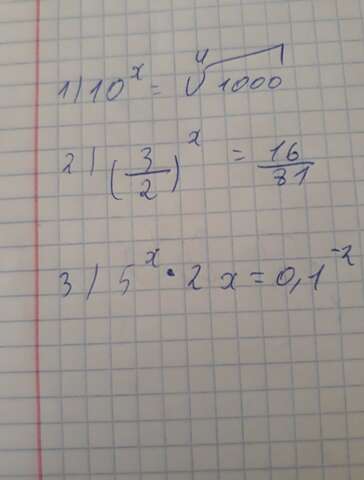 1) 10^x = ⁴√1000
2) (3/2)^x = 16/81
3) 5^x · 2 x = 0,1^-2